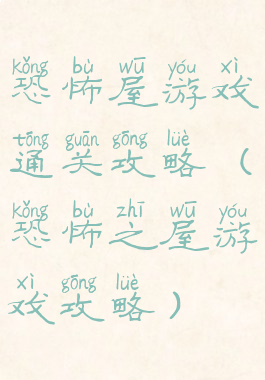 kǒng bù wū yóu xì
恐怖屋游戏
tōng guān gōng lüè
通关攻略（
kǒng bù zhī wū yóu
恐怖之屋游
xì gōng lüè
戏攻略）